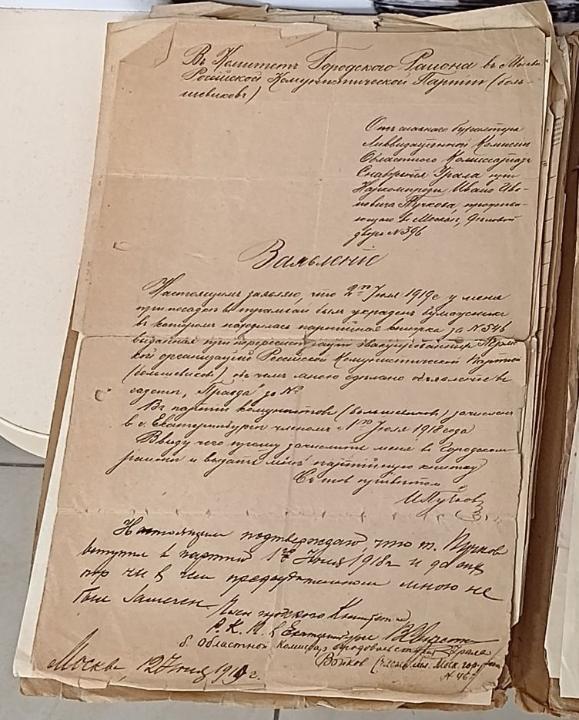 Въ Комитетъ Городского Района въ Москве
Россійской Комунистической Партіи (боль-
шевиковъ)
Отъ главнаго бухгалтера
Ликвидаціонной Комиссіи
Областного Комиссаріата
Снабженія Урала при
Наркомпроде, Ивана Ива-
новича Пучкова, прожива-
ющаго в Москве,
дворъ № 396
Заявленіе
Настоящимъ заявляю, что 2го Іюня 1919 г у меня
при посадке в трамвай был украден бумажник
в котором находилась партійная за № 546
выданная при
организаціей Россійской Комунистической Партіи
(большевиковъ) о чемъ мною сделано
газеты „Правда" за №
Въ партіи комунистовъ (большевиковъ) зачислен
в г. Екатеринбурге членомъ с 1го Іюня 1918 года
Ввиду чего прошу зачислить меня в Городском
районе и выдать мне партійную книжку
Съ тов приветом
И Пучков
Настоящим подтверждаю что т. Пучков
вступил в партию 1го Июня 1918 г и до сих
пор ни в чем предосудительном мною не
был замечен.
Член городского Комитета
Р. К. П. г. Екатеринбурга
б. Областной Комиссар продовольствия Урала
Войков
Москва, 12 1919 г.